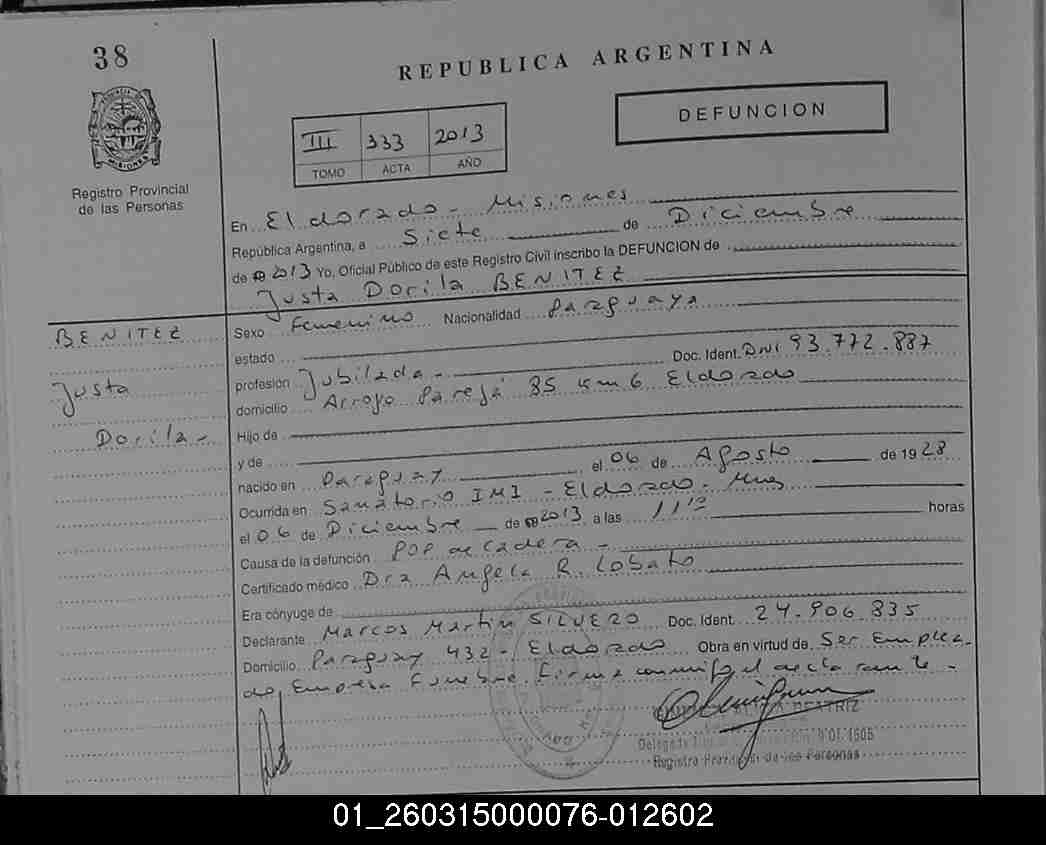 38
REPUBLICA ARGENTINA
DEFUNCION
III 333 2013
TOMO ACTA AÑO
Registro Provincial
de las Personas
En Eldorado - Misiones
República Argentina, a Siete de Diciembre
de 2013 Yo, Oficial Público de este Registro Civil inscribo la DEFUNCION de
Justa Dorila BENITEZ
BENITEZ
Justa
Dorila -
Sexo Femenino Nacionalidad Paraguaya
estado
profesión Jubilada - Doc. Ident. DNI 93.772.887
domicilio Arroyo Pareja 85 km 6 Eldorado
Hijo de
y de
nacido en Paraguay el 06 de Agosto de 1928
Ocurrida en Sanatorio IMI - Eldorado - Mnes
el 06 de Diciembre de 2013 a las 11 horas
Causa de la defunción POP de Cadera -
Certificado médico Dra Angela R. Lobato
Era cónyuge de
Declarante Marcos Martin SILVERO Doc. Ident. 24.906.835
Domicilio Paraguay 432 - Eldorado Obra en virtud de Ser Emplea-
do Empresa Funebre. Firma conmigo el declarante -
BEATRIZ
Registro Provincial de las Personas
01_260315000076-012602